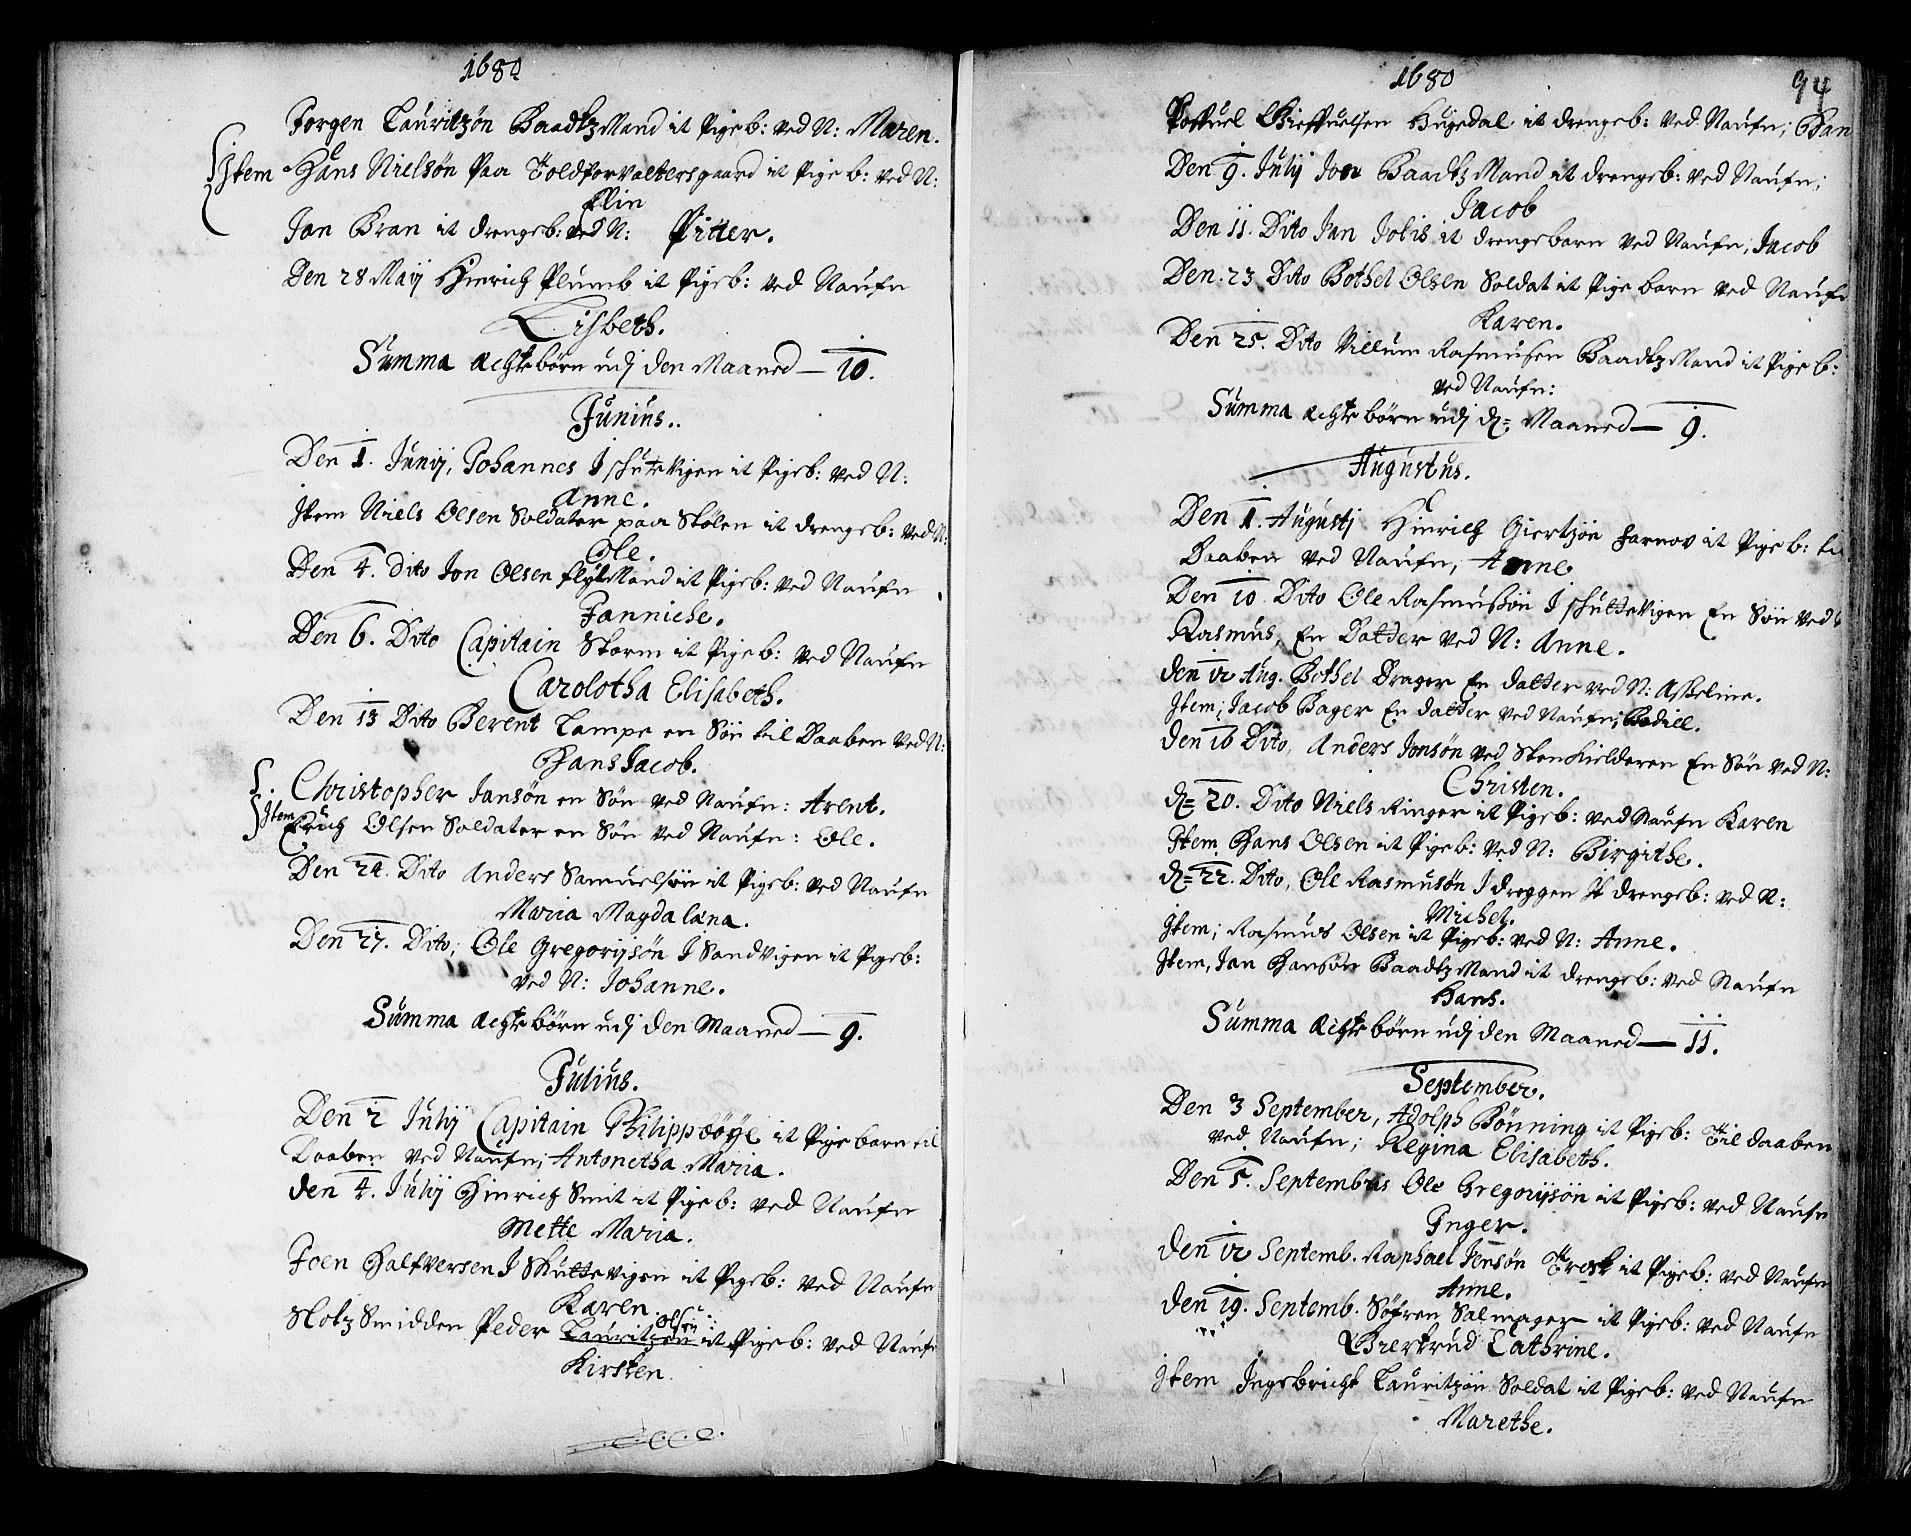 1680
Jørgen Lauritzøn Baadtz Mand it Pigeb: ved N: Maren.
Item Hans Nielsøn Paa Toldforvalters gaard it Pige b: ved N:
Elin
Jan Bran it drengeb: ved N: Pitter.
Den 28 Maij Hinrich Plumb it Pigeb: ved Naufn
Lisbeth.
Summa ächte børn udj den Maaned — 10.
Junius..
Den 1. Junij, Johannes J schutevigen it Pigeb: ved N:
Anne.
Item Niels Olsen Soldater paa Skolen it drengeb: ved N:
Ole.
Den 4. dito Jon Olsen flytMand it Pigeb: ved Naufn
Janniche.
Den 6. Dito Capitain Storm it Pigeb: ved Naufn
Carolotha Elisabeth.
Den 13 Dito Berent Lampe en Søn til Daaben ved N:
Hans Jacob.
Christopher Jansøn en Søn ved Naufn: Arent.
Item Erich Olsen Soldater en Søn ved Naufn: Ole.
Den 24. Dito Anders Samuelsøn it Pigeb: ved Naufn
Maria Magdalena.
Den 27. Dito, Ole Gregorijsøn J Sandvigen it Pigeb:
ved N: Johanne.
Summa ächte børn udj den Maaned — 9.
Julius.
Den 2 Julij Capitain Philipp it Pige barn til
Daaben ved Naufn; Antonetha Maria.
den 4. Julij Hinrich Smit it Pigeb: ved Naufn
Mette Maria.
Joen Halfversen J Skuttevigen it Pigeb: ved Naufn
Karen.
Slotz Smidden Peder Lauritzøn Olsen it Pigeb: ved Naufn
Kirsten.
1680
94
Hugedal it drengeb: ved Naufn;
Den 9. Julij Jon Baadtz Mand it drengeb: ved Naufn;
Jacob
Den 11. Dito Jan Jobis it drengebarn ved Naufn; Jacob
Den: 23 Dito Bothel Olsen Soldat it Pige barn ved Naufn
Karen.
Den 25. Dito Villum Rasmusen Baadtz Mand it Pige b:
ved Naufn:
Summa ächte børn udj dn= Maaned — 9.
Augustus.
Den 1. Augustj Hinrich Giertzøn Farnov it Pige b: til
Daaben ved Naufn, Anne
Den 10 Dito Ole Rasmusøn J schuttevigen En Søn ved
Rasmus, En Datter ved N: Anne.
den 12 Aug. Bothel Drager En datter ved N: Asseline.
Item, Jacob Bager En datter ved Naufn; Bodill.
den 16 Dito, Anders Jonsøn ved Stenkielderen En Søn ved N:
Christen.
dn= 20. Dito Niels Ringer it Pigeb: ved Naufn Karen
Item Hans Olsen it Pigeb: ved N: Birgithe.
dn= 22. Dito, Ole Rasmusøn J dreggen it drengeb: ved N:
Michel.
Item; Rasmus Olsen it Pigeb: ved N: Anne.
Item, Jan Hansøn Baadtz Mand it drengeb: ved Naufn
Hans.
Summa ächte børn udj den Maaned — 11.
September.
Den 3 September, Adolph Bønning it Pigeb: Til daaben
ved Naufn; Regina Elisabeth.
Den 5. Septembris Ole Gregorijsøn it Pigeb: ved Naufn
Inger.
den 12 Septemb. Raphael Jensøn Tresk it Pigeb: ved Naufn
Anne.
den 19. Septemb. Søfren Salmager it Pigeb: ved Naufn
Giertrud Cathrine.
Item Ingebricht Lauritzøn Soldat it Pigeb: ved Naufn
Marethe.